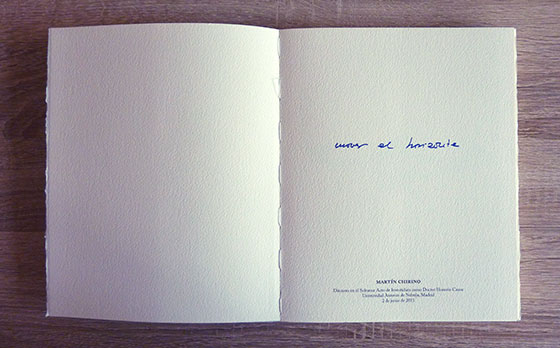 mover el horizonte
MARTÍN CHIRINO
Discurso en el Solemne Acto de Investidura como Doctor Honoris Causa
Universidad Antonio de Nebrija, Madrid
2 de junio de 2015